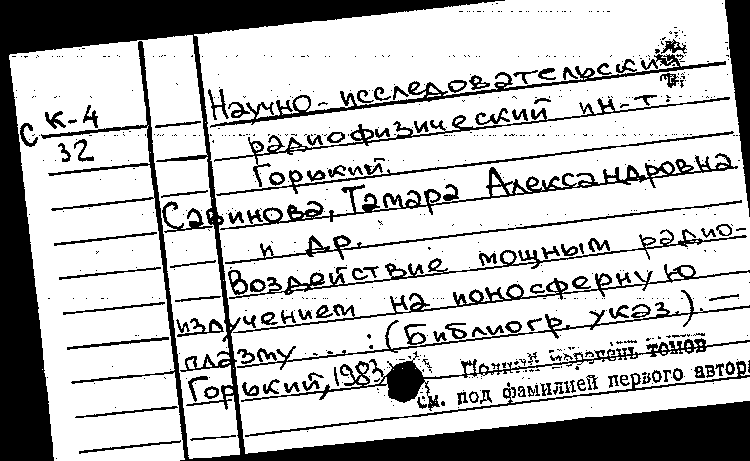 С К-4
32
Научно-исследовательский
радиофизический ин-т.
Горький.
Савинова, Тамара Александровна
и др.
Воздействие мощным радио-
излучением на ионосферную
плазму ... : (Библиогр. указ.). —
Горький, 1983
Полный перечень томов
см. под фамилией первого автора